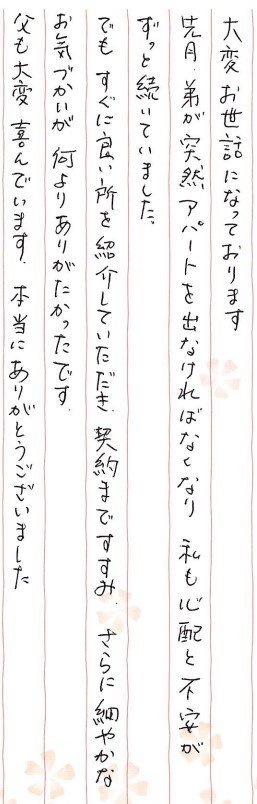 大変お世話になっております
先月、弟が突然、アパートを出なければなくなり 私も心配と不安が
ずっと続いていました。
でも すぐに良い所を紹介していただき、契約まですすみ、さらに細やかな
お気づかいが 何よりありがたかったです。
父も大変 喜んでいます。本当にありがとうございました